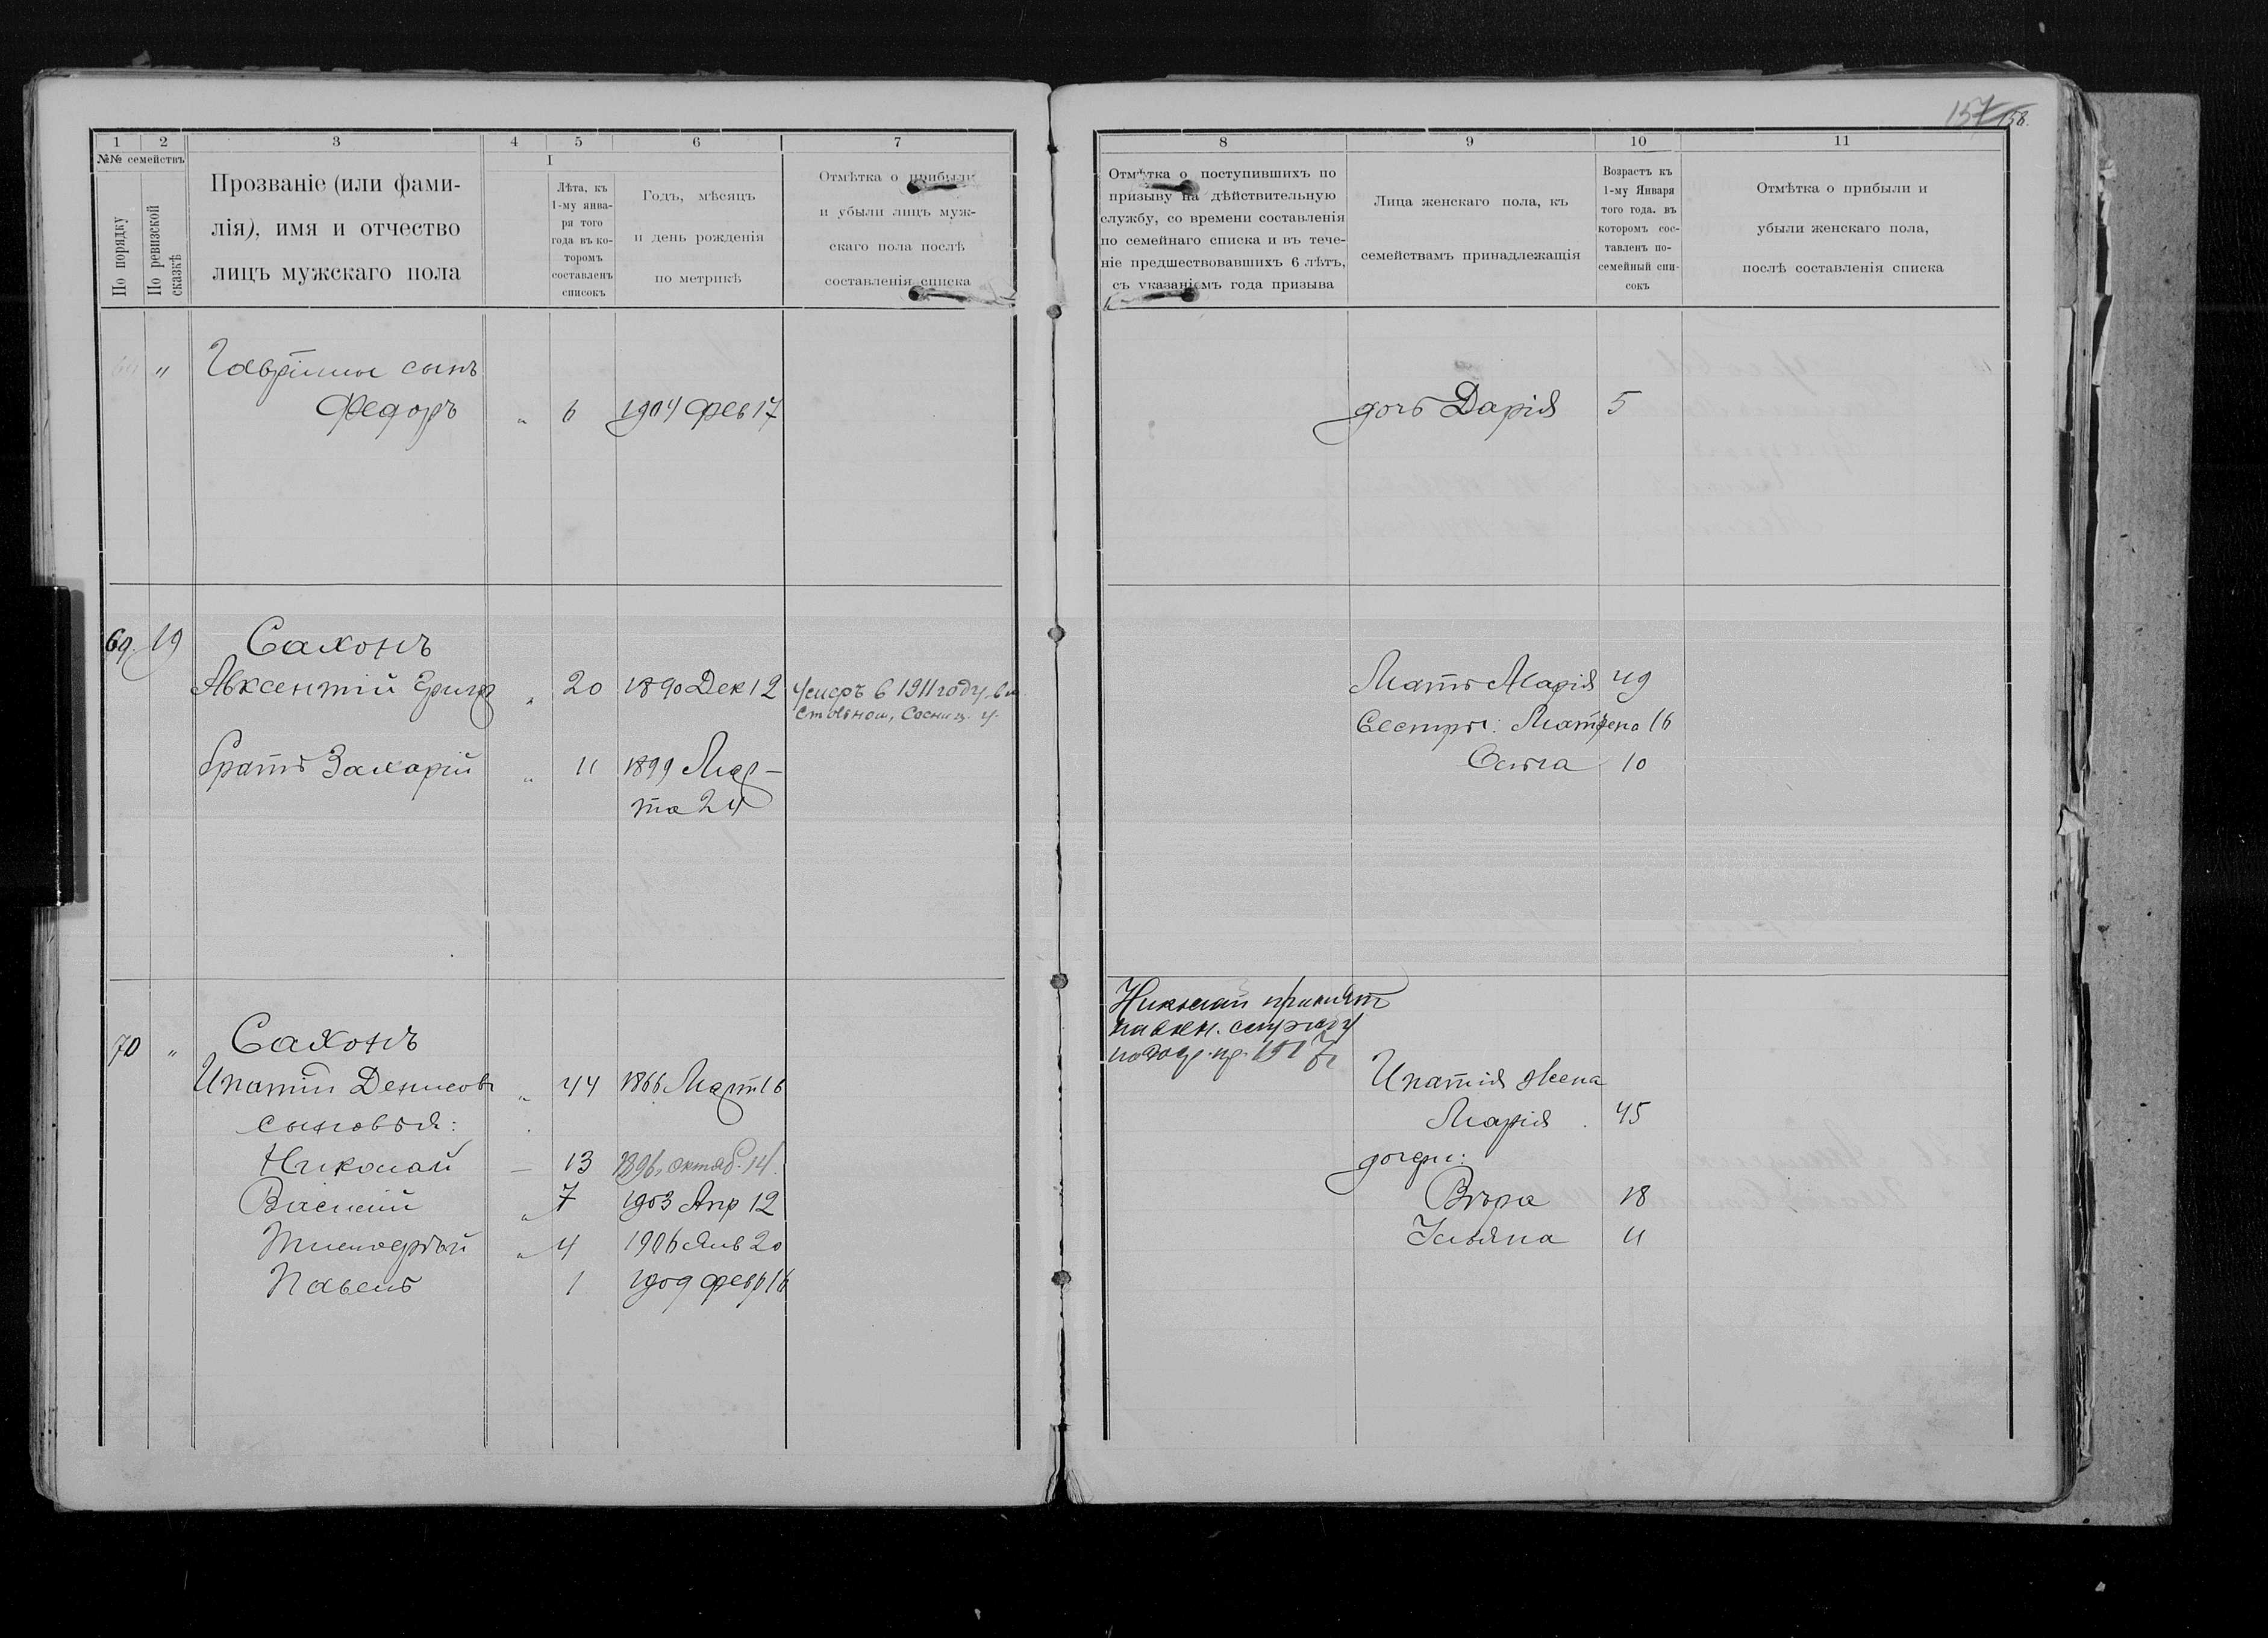 157 158.
1 2 3 4 5 6 7
№№ семействъ
По порядку
По ревизской сказкѣ
Прозваніе (или фами-
лія), имя и отчество
лицъ мужскаго пола
I
Лѣта, къ
1-му янва-
ря того
года въ ко-
торомъ
составленъ
списокъ
Годъ, мѣсяцъ
и день рожденія
по метрикѣ
Отмѣтка о прибыли
и убыли лицъ муж-
скаго пола послѣ
составленія списка
" сынъ
Федоръ " 6 1904 Фев 17
69. 19 Сахонъ
Авксентій Григ " 20 1890 Дек 12
умеръ 6 1911 году, в м
Стольном, Сосниц. у.
братъ Захарій " 11 1899 Мар-
та 24
70 " Сахонъ
Ипатій Денисовъ " 44 1866 Март 16
сыновья:
Николай — 13 1896, октяб. 14.
Василій " 7 1903 Апр 12
Тимофей " 4 1906 Янв 20
Павелъ 1 1909 февр 16
8 9 10 11
Отмѣтка о поступившихъ по
призыву на дѣйствительную
службу, со времени составленія
по семейнаго списка и въ тече-
ніе предшествовавшихъ 6 лѣтъ,
съ указаніемъ года призыва
Лица женскаго пола, къ
семействамъ принадлежащія
Возрастъ къ
1-му Января
того года. въ
которомъ сос-
тавленъ по-
семейный спи-
сокъ
Отмѣтка о прибыли и
убыли женскаго пола,
послѣ составленія списка
дочь Дарія 5
Мать Марія 49
Сестры: Матрена 16
Ольга 10
Николай принят
на воен. службу
Ипатія жена
Марія . 45
дочери:
Вѣра 18
Ульяна 11